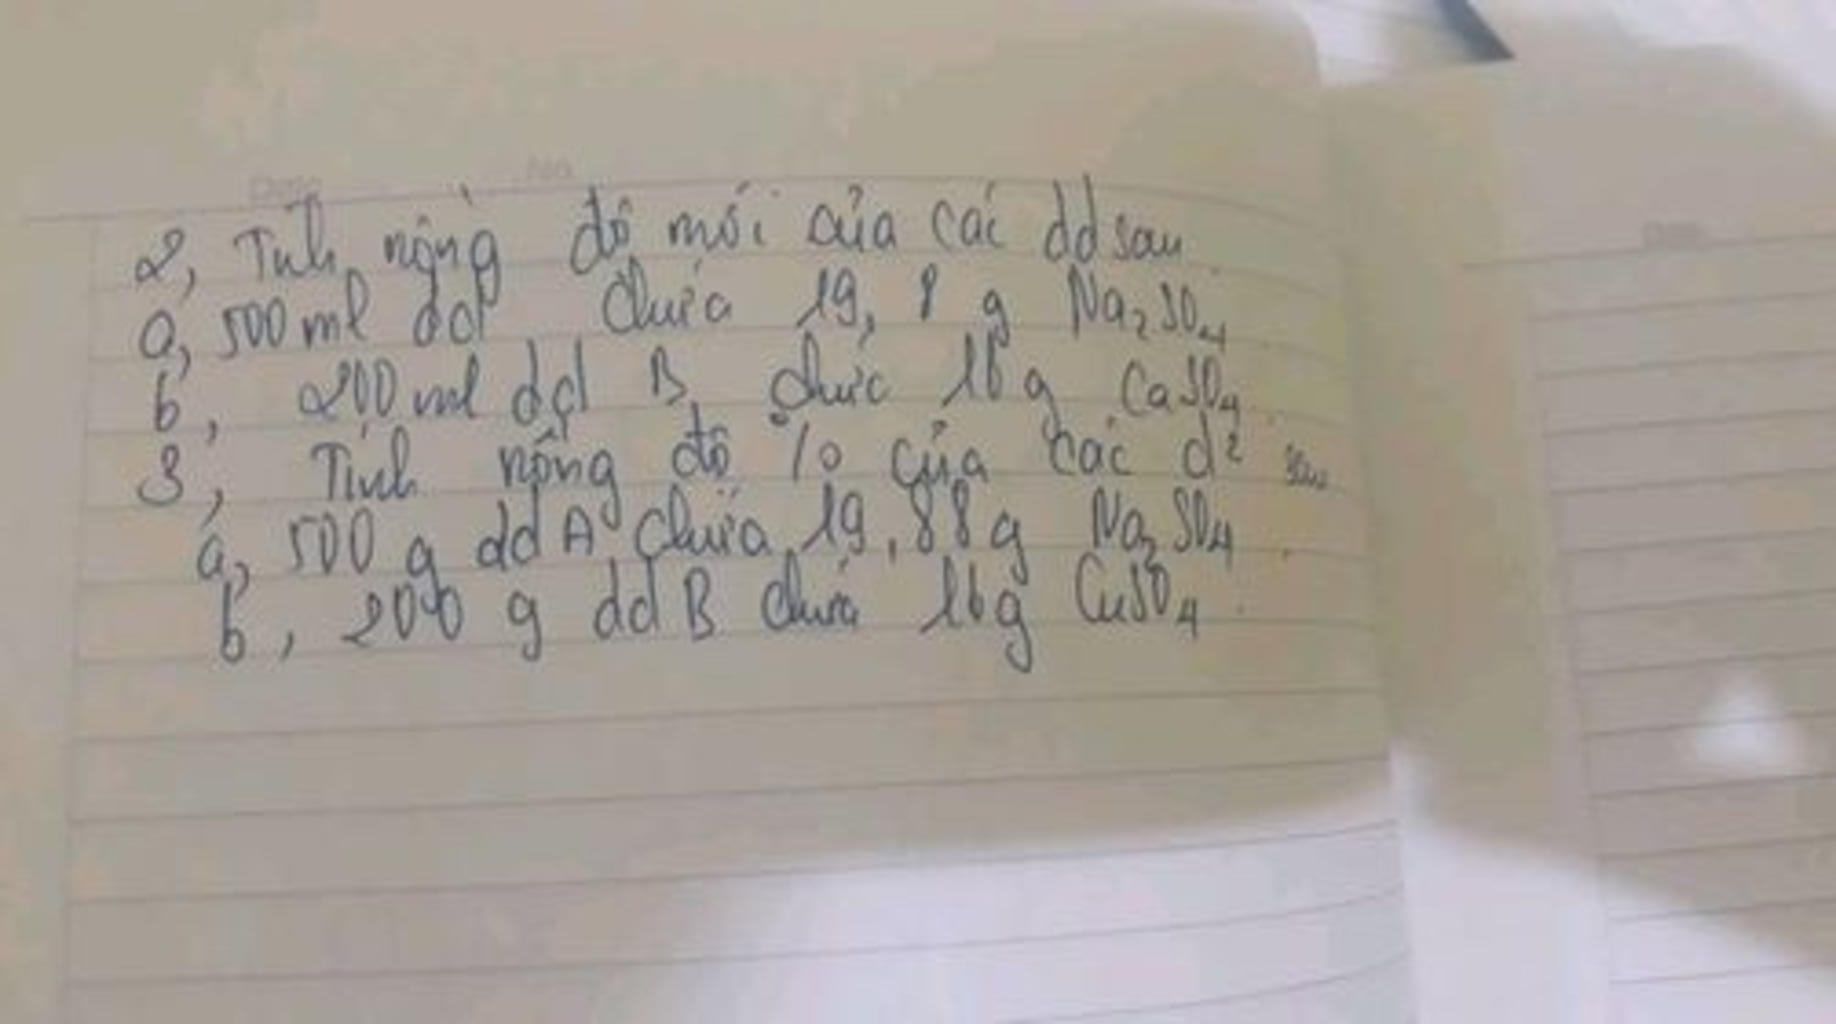 Date No
2, Tính nồng độ mới của các dd sau
a, 500 ml dd chứa 19, 8 g Na₂SO₄
b, 200 ml dd B chứa 16 g CaSO₄
3, Tính nồng độ % của các d² sau
a, 500 g dd A chứa 19,88 g Na₂SO₄.
b, 200 g dd B chứa 16g CuSO₄.